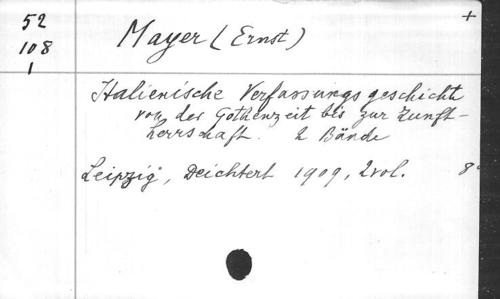 52
108
1
Mayer (Ernst)
+
Italienische Verfassungsgeschichte
von der Gothenzeit bis zur Zunft-
herrschaft. 2 Bände
Leipzig, Deichert 1909, 2 vol. 8°